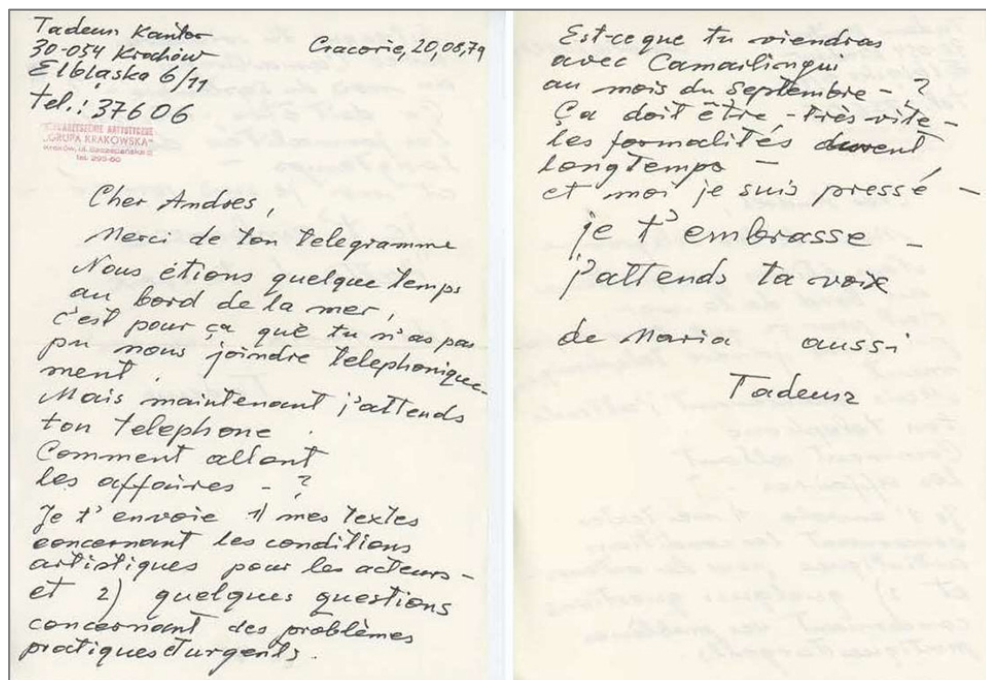 Tadeusz Kantor
30-054 Kraków
Elbląska 6/11
tel.: 37606
Cracovie, 20,08,79
STOWARZYSZENIE ARTYSTYCZNE
„GRUPA KRAKOWSKA"
Kraków, ul. Szczepańska 2
tel. 295-60
Cher Andres,
Merci de ton telegramme
Nous étions quelque temps
au bord de la mer,
c'est pour ça que tu n'as pas
pu nous joindre telephonique-
ment.
Mais maintenant j'attends
ton telephone.
Comment allont
les affaires - ?
Je t'envoie 1) mes textes
concernant les conditions
artistiques pour les acteurs -
et 2) quelques questions
concernant des problèmes
pratiques d'urgents.
Est-ce que tu viendras
avec Camarlingui
au mois du septembre - ?
Ça doit être, - très vite -
les formalités durent
longtemps -
et moi je suis pressé -
je t'embrasse -
j'attends ta voix
de Maria aussi
Tadeusz